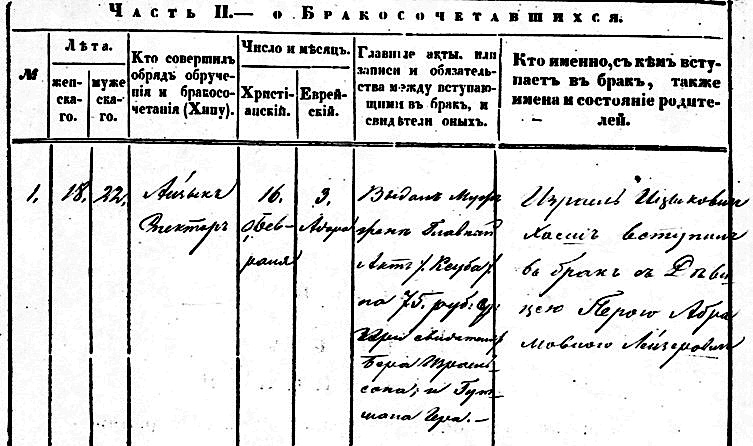 Часть II.— о Бракосочетавшихся.
№
Лѣта.
жен-
скаго.
муже
скаго.
Кто совершилъ
обрядъ обруче-
нія и бракосо-
четанія (Хипу).
Число и мѣсяцъ.
Христі-
анскій.
Еврей-
скій.
Главные акты. или
записи и обязатель-
ства между вступаю-
щими въ бракъ, и
свидѣтели оныхъ.
Кто именно, съ кѣмъ всту-
паетъ въ бракъ, также
имена и состояніе родите-
лей.
1.
18.
22.
Айзыкъ
Спекторъ
16.
Фев-
раля
3.
Адара
Выданъ
Главный
Актъ /Ксуба/
на 75. руб.
при
Бера
сона, и Гут-
мана
Израиль Ицыковичъ
вступилъ
въ бракъ съ Дѣви-
цею Перою Абра
мовною